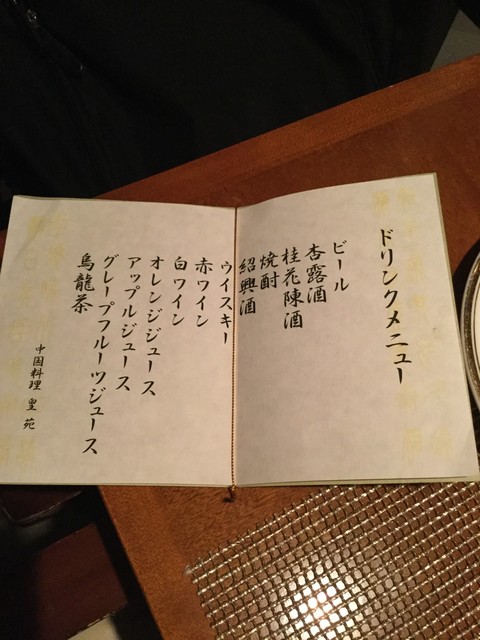 ドリンクメニュー
ビール
杏露酒
桂花陳酒
焼酎
紹興酒
ウイスキー
赤ワイン
白ワイン
オレンジジュース
アップルジュース
グレープフルーツジュース
烏龍茶
中国料理 皇苑